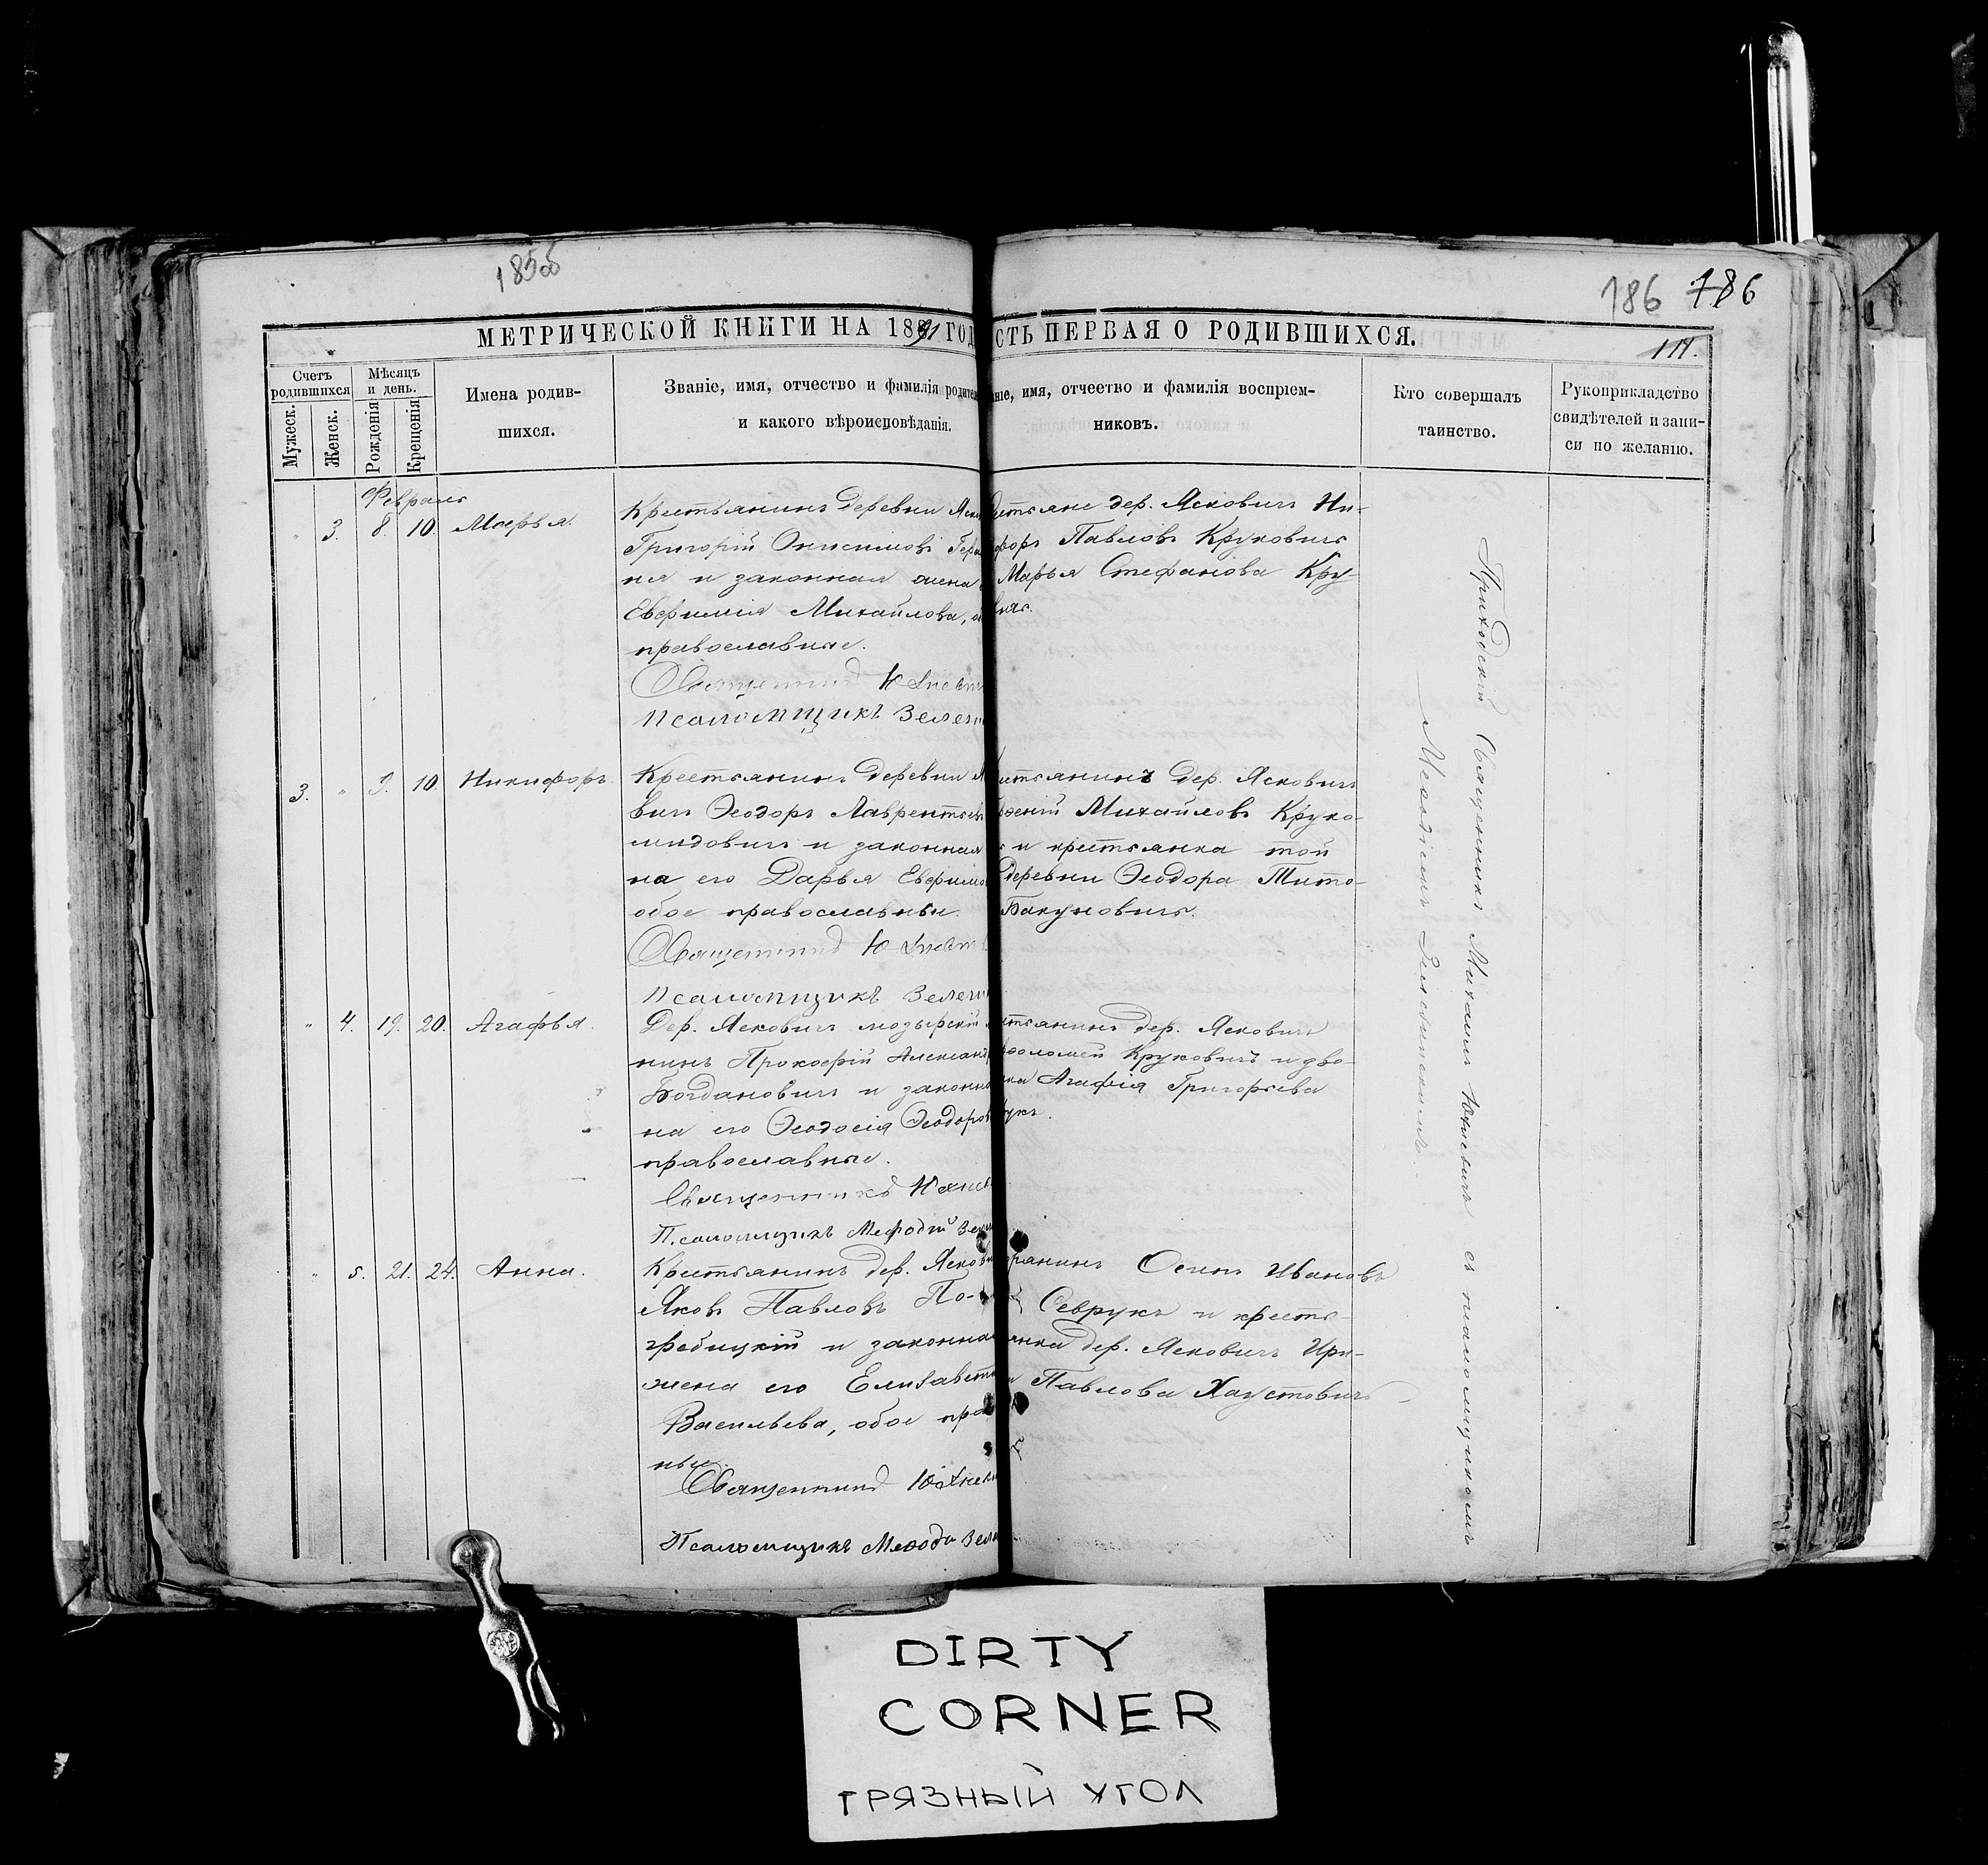 185об
186 186
МЕТРИЧЕСКОЙ КНИГИ НА 1891 ГОД
СТЬ ПЕРВАЯ О РОДИВШИХСЯ.
Счетъ родившихся
Мужеск.
Женск.
Мѣсяцъ и день.
Рожденія
Крещенія
Имена родив-
шихся.
Званіе, имя, отчество и фамилія родител
и какого вѣроисповѣданія.
ніе, имя, отчество и фамилія воспріем-
никовъ.
Кто совершалъ
таинство.
Рукоприкладство
свидѣтелей и запи-
си по желанію.
Февраль
" 3. 8. 10. Марья.
Крестьянинъ деревни Яск
Григорій Онисимовъ Гер
ня и законная жена
Евфимія Михайлова, о
православные.
Священникъ Юхнев
Псаломщикъ Зелен
стьяне дер. Ясковичъ Ни-
форъ Павловъ Круковичъ
Марья Стефанова Кру-
3. " 9. 10. Никифоръ.
Крестьянинъ деревни Я
вичъ Ѳеодоръ Лаврентьев
мидовичъ и законная
на его Дарья Евфимо
обое православны.
Священникъ Юхнев
Псаломщикъ Зелен
стьянинъ дер. Ясковичъ
Михайловъ Круко-
и крестьянка той
деревни Ѳеодора Тито-
Бакуновичъ.
" 4. 19. 20. Агафья.
Дер. Ясковичъ мозырскій
нинъ Прокофій Алексан
Богдановичъ и законн
на его Ѳеодосія Ѳеодоров
православные.
Священникъ Юхнев
Псаломщикъ Мефодій Зел
стьянинъ дер. Ясковичъ
фоломей Круковичъ и дво-
нка Агафія Григорьева
укъ.
" 5. 21. 24. Анна.
Крестьянинъ дер. Яскови
Яковъ Павловъ По-
гребицкій и законная
жена его Елисавета
Васильева, обое пра
ны.
Священникъ Юхнев
Псаломщикъ Меѳоди Зел
Осипъ Ивановъ
Севрукъ и кресть-
янка дер. Ясковичъ Ири-
Павлова Хаустовичъ
Приходскій Священникъ Михаилъ Юхневичъ съ псаломщикомъ
Меѳодіемъ Зеленинскомъ.
DIRTY
CORNER
ГРЯЗНЫЙ УГОЛ